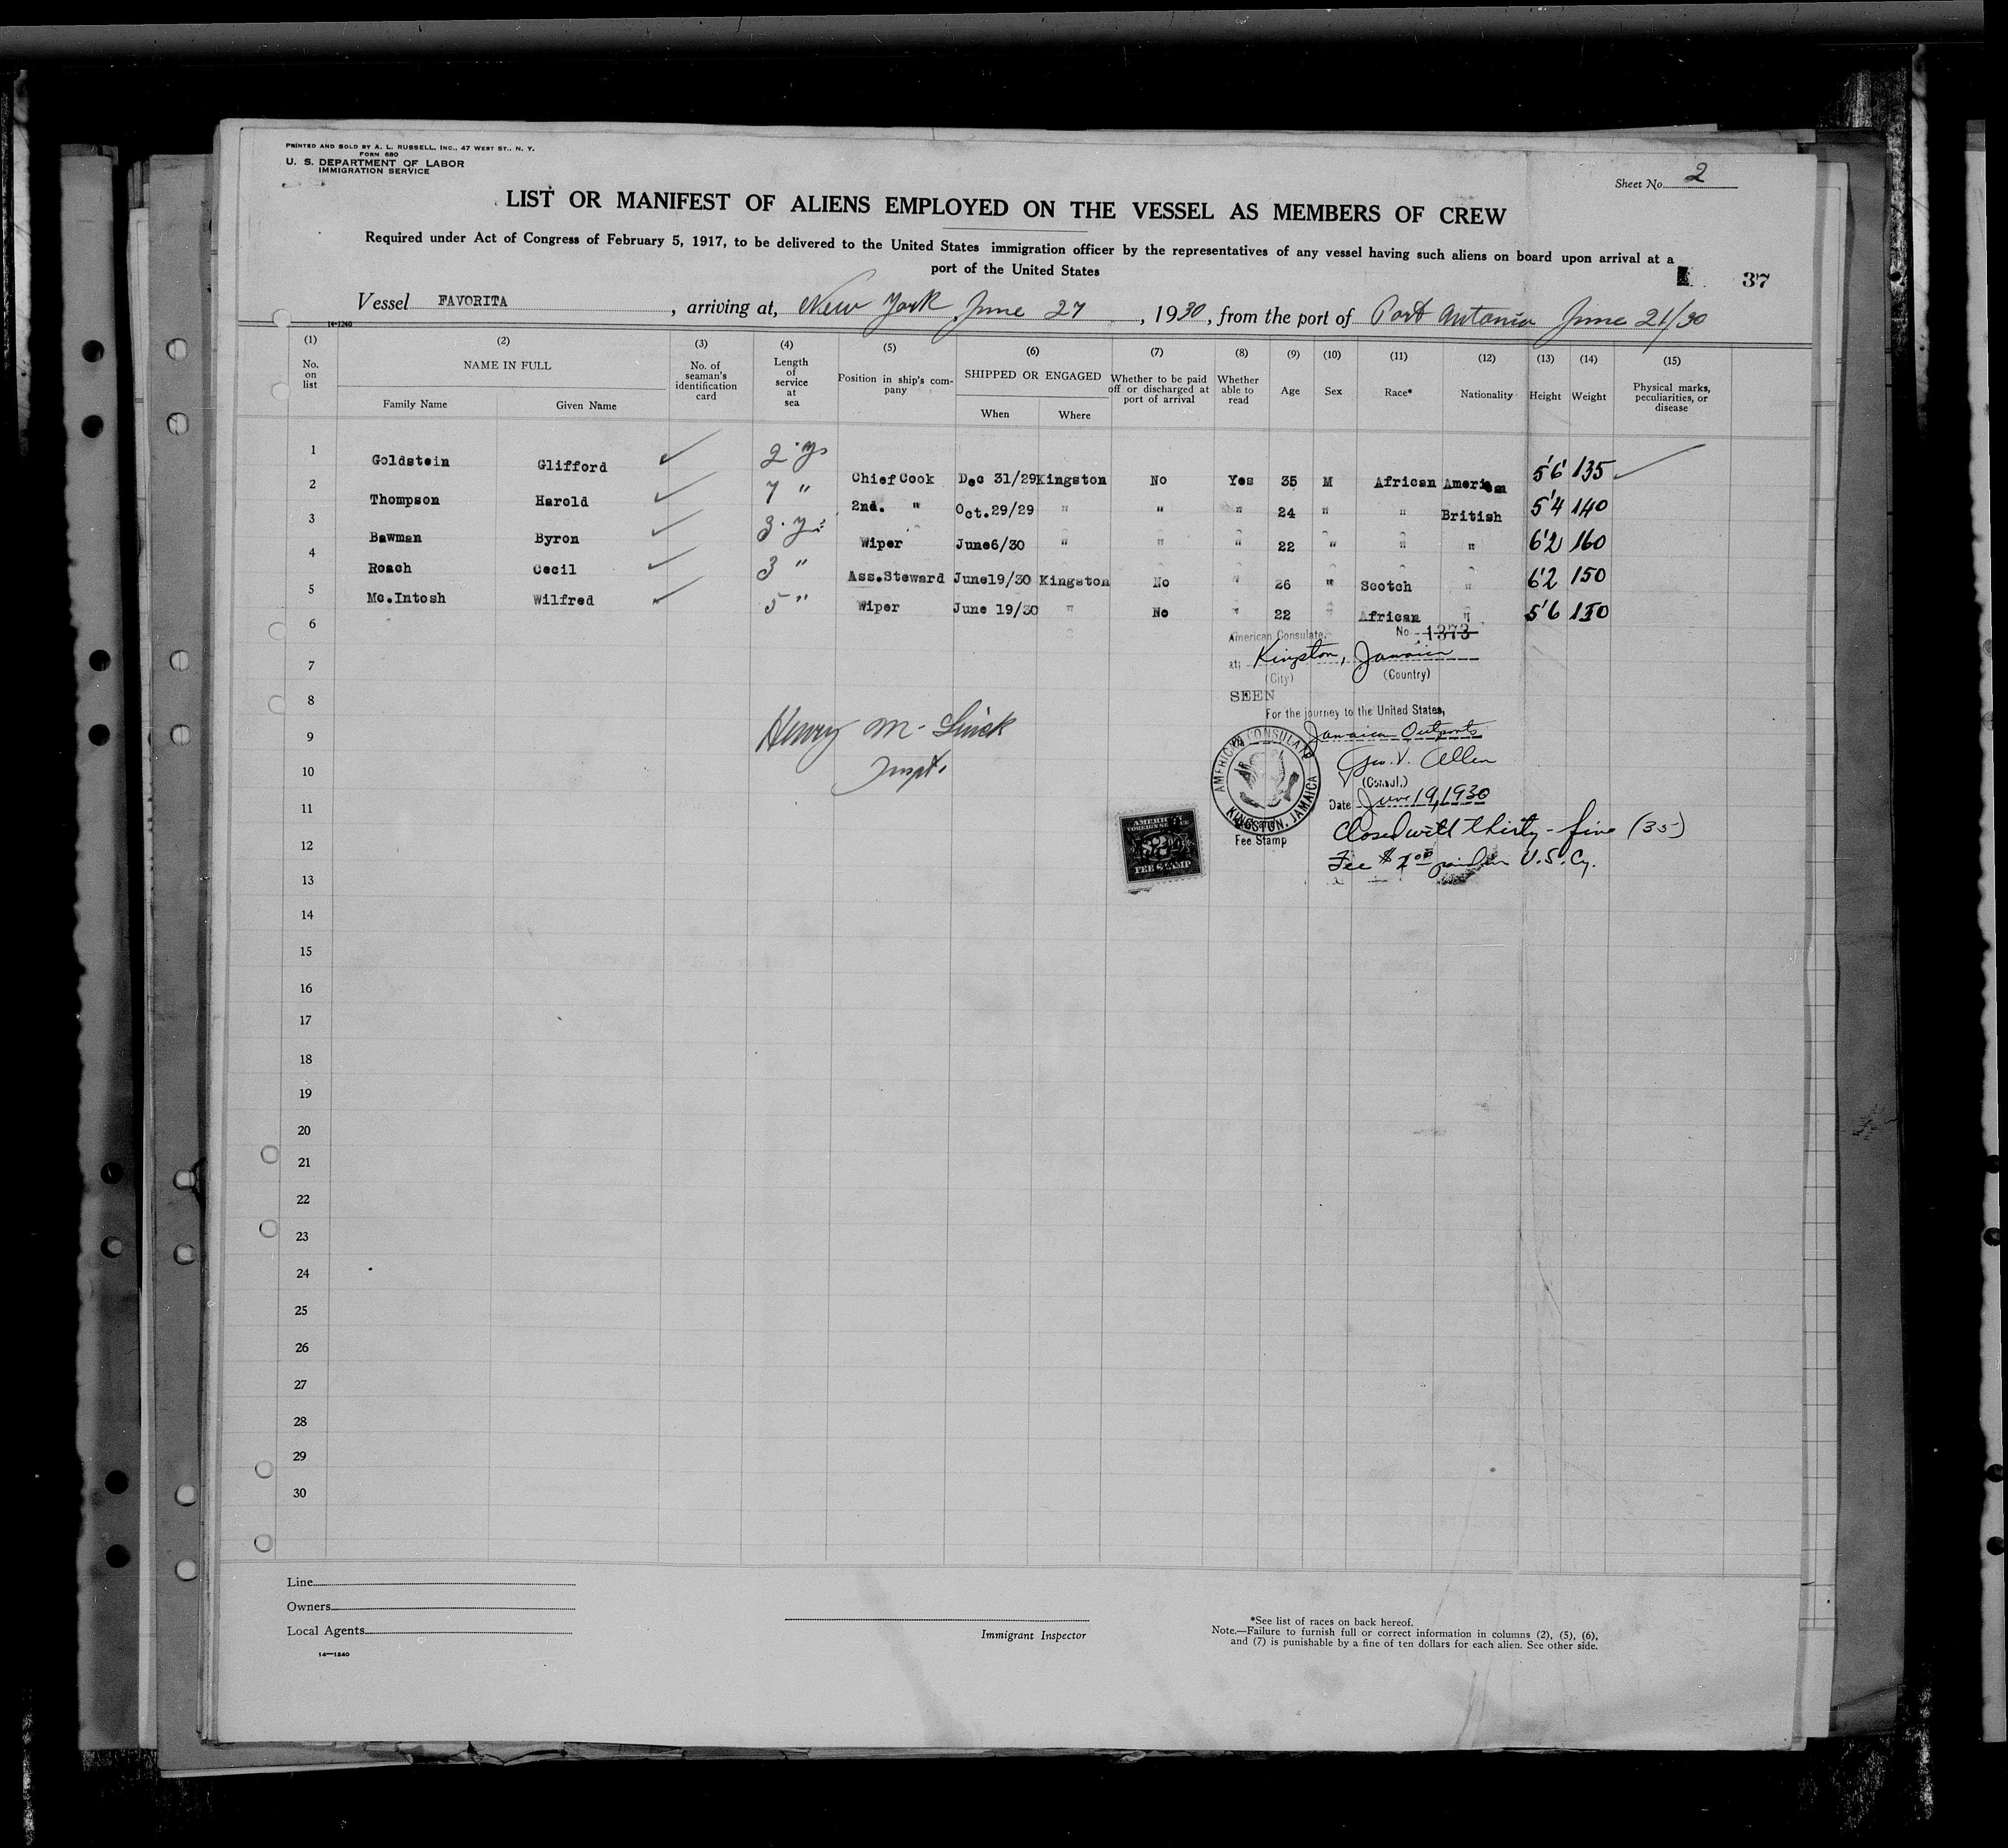 PRINTED AND SOLD BY A. L. RUSSELL, INC., 47 WEST ST., N. Y.
FORM 680
U. S. DEPARTMENT OF LABOR
IMMIGRATION SERVICE
Sheet No. 2
LIST OR MANIFEST OF ALIENS EMPLOYED ON THE VESSEL AS MEMBERS OF CREW
Required under Act of Congress of February 5, 1917, to be delivered to the United States immigration officer by the representatives of any vessel having such aliens on board upon arrival at a
port of the United States
37
Vessel FAVORITA, arriving at, New York, June 27, 1930, from the port of Port Antonio June 21/30
14-1240
(1) (2) (3) (4) (5) (6) (7) (8) (9) (10) (11) (12) (13) (14) (15)
No. on list NAME IN FULL Family Name Given Name No. of seaman's identification card Length of service at sea Position in ship's company SHIPPED OR ENGAGED When Where Whether to be paid off or discharged at port of arrival Whether able to read Age Sex Race* Nationality Height Weight Physical marks, peculiarities, or disease
1 Goldstein Glifford ✓ 2 ys Chief Cook Dec 31/29 Kingston No Yes 35 M African American 5'6' 135 ✓
2 Thompson Harold ✓ 7 " 2nd. " Oct.29/29 " " " 24 " " British 5'4 140
3 Bawman Byron ✓ 3 ys Wiper June6/30 " " " 22 " " " 6'2 160
4 Roach Cecil ✓ 3 " Ass.Steward June19/30 Kingston No " 26 " Scotch " 6'2 150
5 Mc.Intosh Wilfred ✓ 5 " Wiper June 19/30 " No " 22 " African " 5'6 150
6
7
8
9
10
11
12
13
14
15
16
17
18
19
20
21
22
23
24
25
26
27
28
29
30
American Consulate, No. 1373
at; Kingston, Jamaica
(City) (Country)
SEEN
For the journey to the United States,
Jamaica Outports
Geo. V. Allen
(Consul.)
Date June 19, 1930
Closed with thirty-five (35)
Fee $2.00 paid in U.S.Cy.
AMERICAN CONSULATE
KINGSTON, JAMAICA
Fee Stamp
AMERICAN
FOREIGN SERVICE
$2
FEE STAMP
Henry M.
Inspt.
Line
Owners
Local Agents
14—1240
Immigrant Inspector
*See list of races on back hereof.
Note.—Failure to furnish full or correct information in columns (2), (5), (6),
and (7) is punishable by a fine of ten dollars for each alien. See other side.